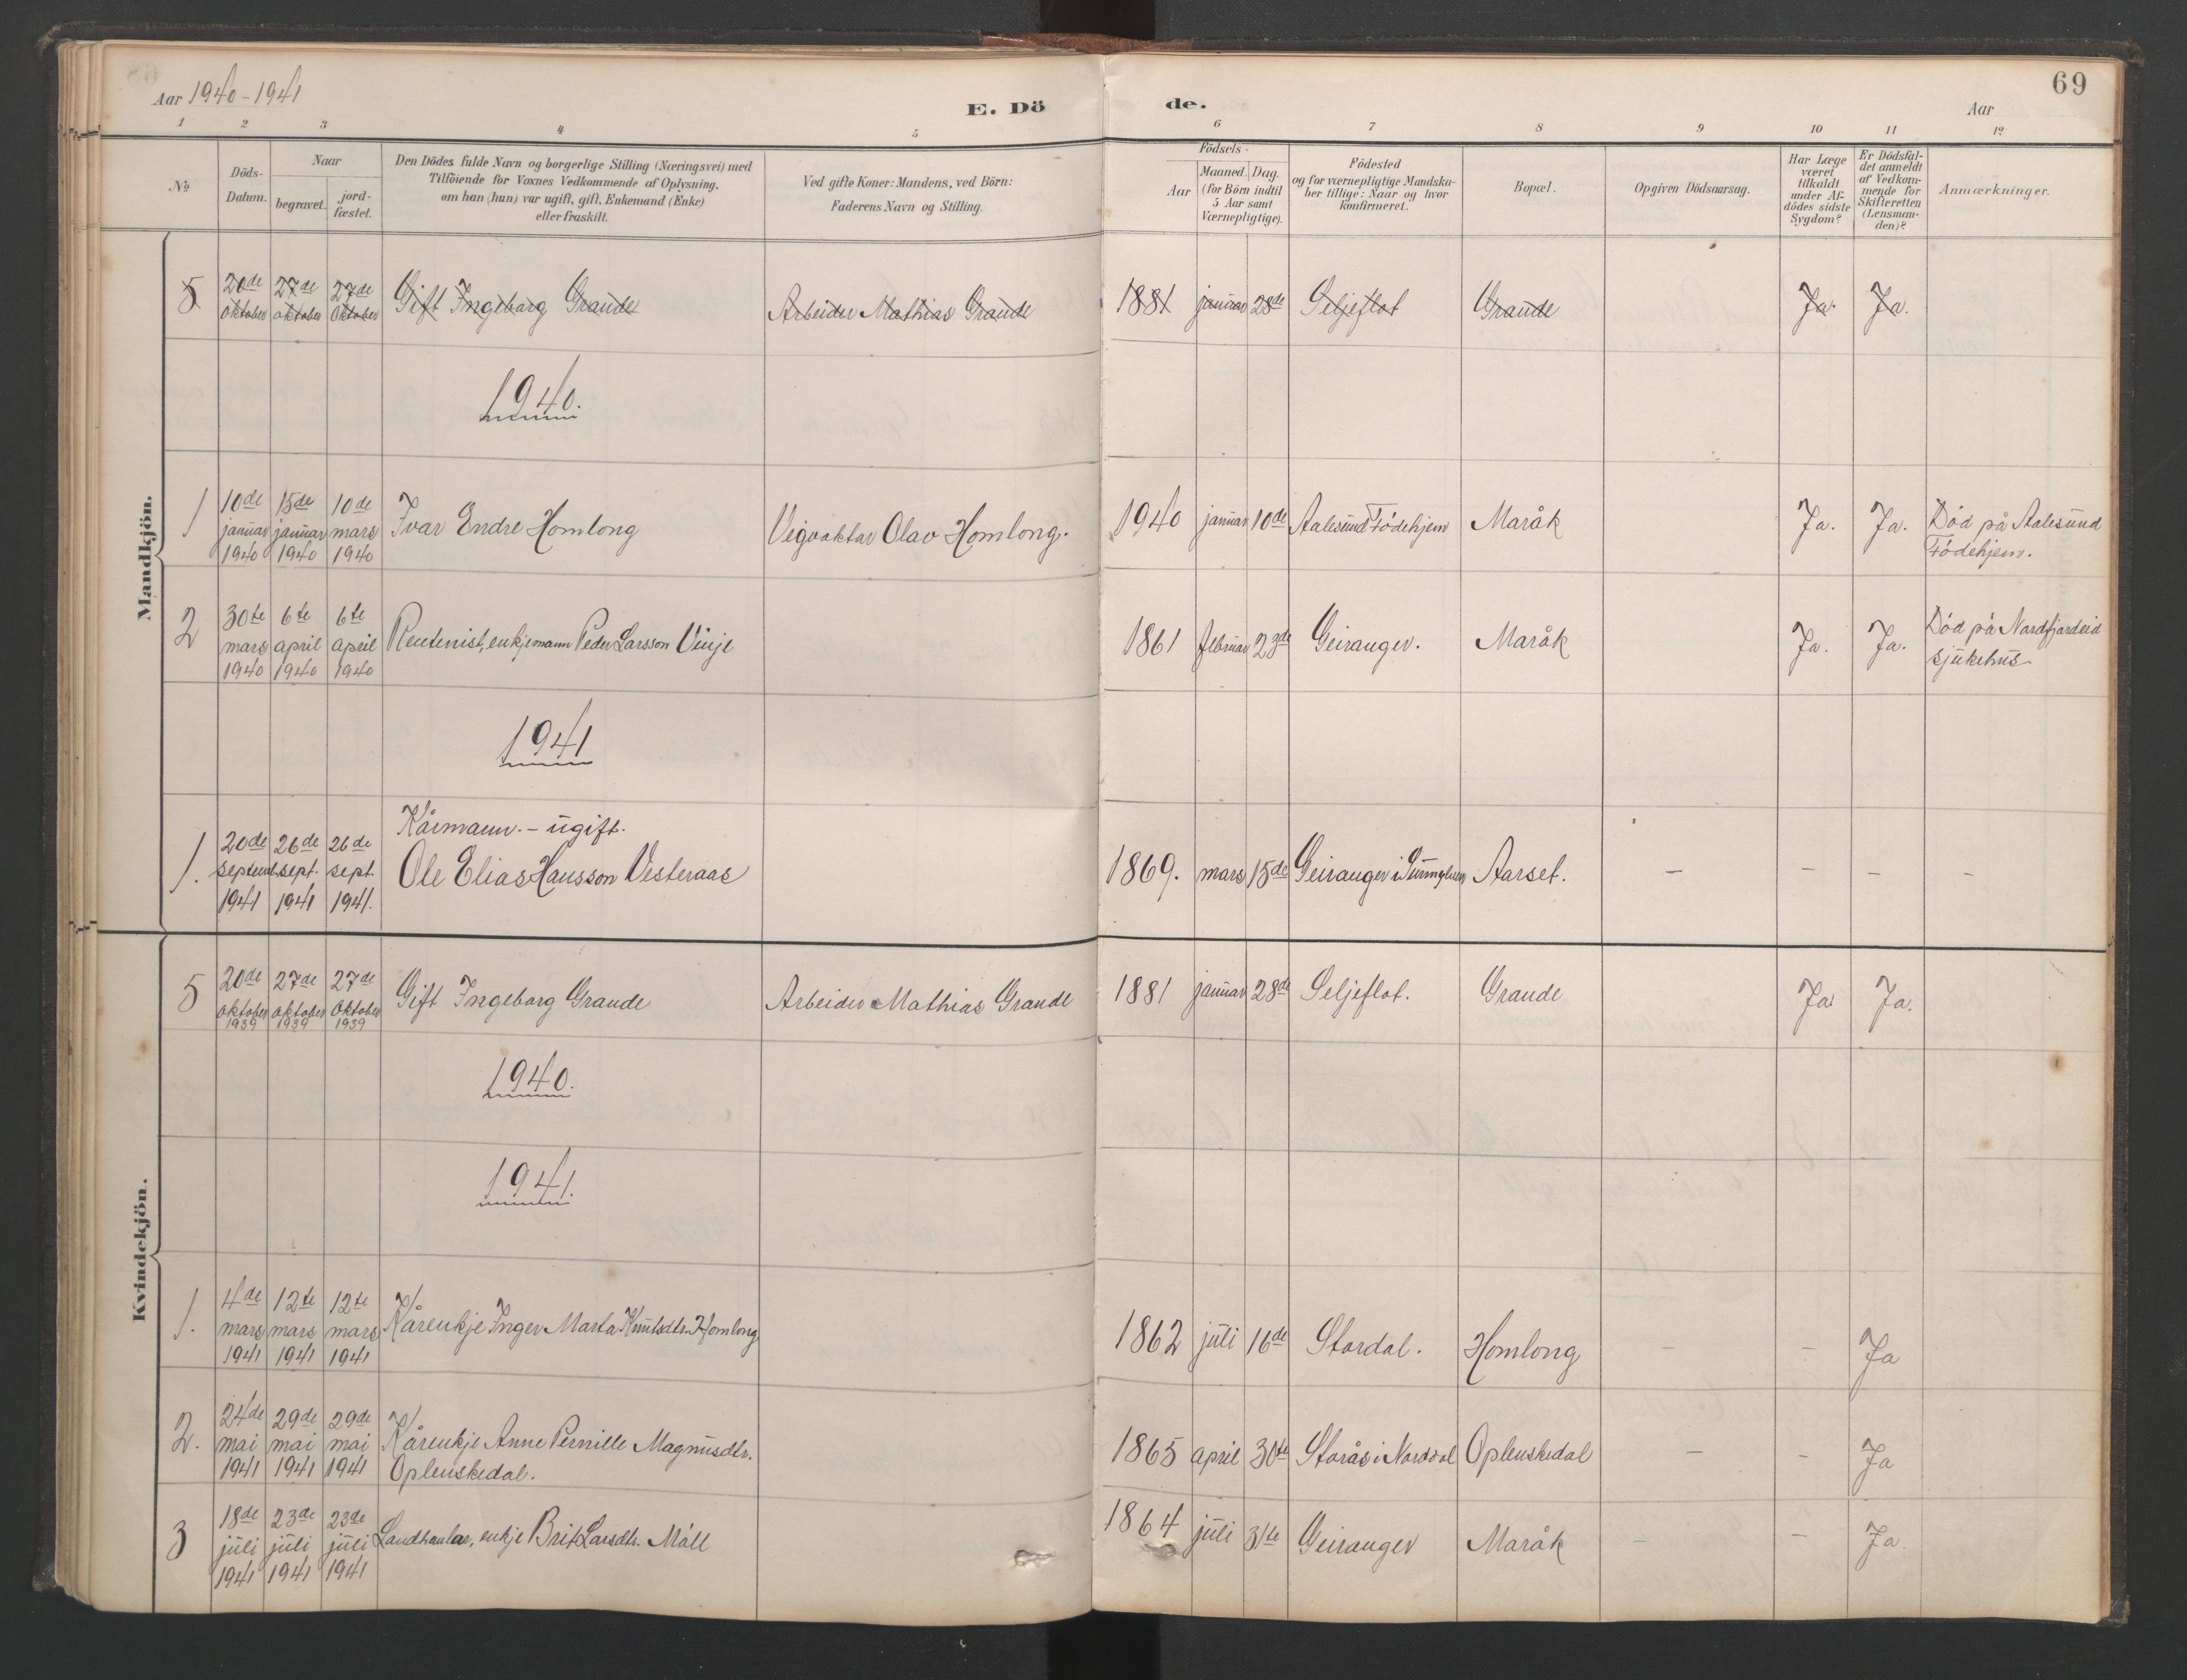 Aar 1940-1941
E. Dö de.
Aar
69
1 2 3 4 5 6 7 8 9 10 11 12
No
Döds-
Datum.
Naar
begravet.
jord-
fæstet.
Den Dödes fulde Navn og borgerlige Stilling (Næringsvei) med
Tilföiende for Voxnes Vedkommende af Oplysning,
om han (hun) var ugift, gift, Enkemand (Enke)
eller fraskilt.
Ved gifte Koner: Mandens, ved Börn:
Faderens Navn og Stilling.
Födsels-
Aar
Maaned. Dag.
(for Börn indtil
5 Aar samt
Værnepligtige).
Födested
og for værnepligtige Mandska-
ber tillige: Naar og hvor
konfirmeret.
Bopæl.
Opgiven Dödsaarsag.
Har Læge
været
tilkaldt
under Af-
dödes sidste
Sygdom?
Er Dödsfal-
det anmeldt
af Vedkom-
mende for
Skifteretten
(Lensman-
den)?
Anmærkninger.
Mandkjön.
5 20de oktober 27de oktober 27de oktober Gift Ingeborg Grande Arbeider Mathias Grande 1881 januar 28de Seljeflot Grande Ja. Ja.
1940.
1 10de januar 1940 15de januar 1940 10de mars 1940 Ivar Endre Homlong Vegvaktar Olav Homlong. 1940 januar 10de Aalesund Födehjem Maråk Ja. Ja. Död på Aalesund
Födehjem.
2 30te mars 1940 6te april 1940 6te april 1940 Rentenist, enkjemann Peder Larsson Vinje 1861 februar 23de Geiranger. Maråk Ja. Ja. Död på Nordfjordeid
sjukehus
1941
Kårmann. - ugift.
1. 20de septemb. 1941 26de sept. 1941 26de sept. 1941. Ole Elias Hansson Vesteraas 1869. mars 15de Geiranger i Sunnylven Aarset. - - - -
Kvindekjön.
5 20de oktober 1939 27de oktober 1939 27de oktober 1939 Gift Ingeborg Grande Arbeider Mathias Grande 1881 januar 28de Seljeflot. Grande Ja Ja.
1940.
1941.
1. 4de mars 1941 12te mars 1941 12te mars 1941 Kårenkje Inger Marta Knutsdtr. Homlong 1862 juli 16de Stordal. Homlong - - Ja
2. 24de mai 1941 29de mai 1941 29de mai 1941 Kårenkje Anne Pernille Magnusdtr.
Oplenskedal. 1865 april 30te Storås i Norddal Oplenskedal - - Ja
3 18de juli 1941 23de juli 1941 23de juli 1941 Landhandlar, enkje Brit Larsdtr. Möll 1864 juli 31te Geiranger Maråk - - Ja.